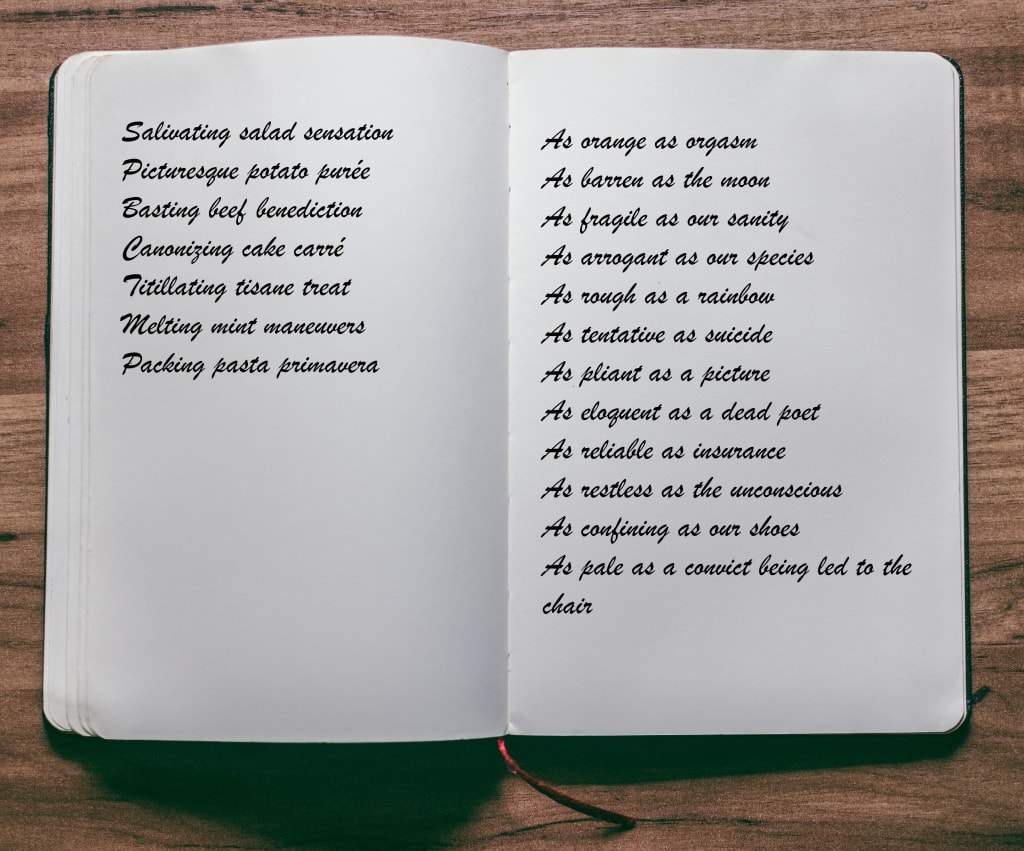 Salivating salad sensation
Picturesque potato purée
Basting beef benediction
Canonizing cake carré
Titillating tisane treat
Melting mint maneuvers
Packing pasta primavera
As orange as orgasm
As barren as the moon
As fragile as our sanity
As arrogant as our species
As rough as a rainbow
As tentative as suicide
As pliant as a picture
As eloquent as a dead poet
As reliable as insurance
As restless as the unconscious
As confining as our shoes
As pale as a convict being led to the
chair